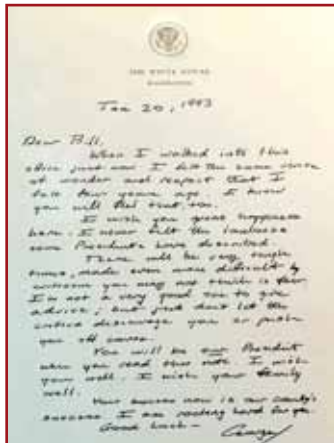 THE WHITE HOUSE
WASHINGTON
Jan 20, 1993
Dear Bill,
When I walked into this
office just now I felt the same sense
of wonder and respect that I
felt four years ago. I know
you will feel that too.
I wish you great happiness
here. I never felt the loneliness
some Presidents have described.
There will be very tough
times, made even more difficult by
criticism you may not think is fair.
I'm not a very good one to give
advice; but just don't let the
critics discourage you or push
you off course.
You will be our President
when you read this note. I wish
you well. I wish your family
well.
Your success now is our country's
success. I am rooting hard for you.
Good Luck -
George